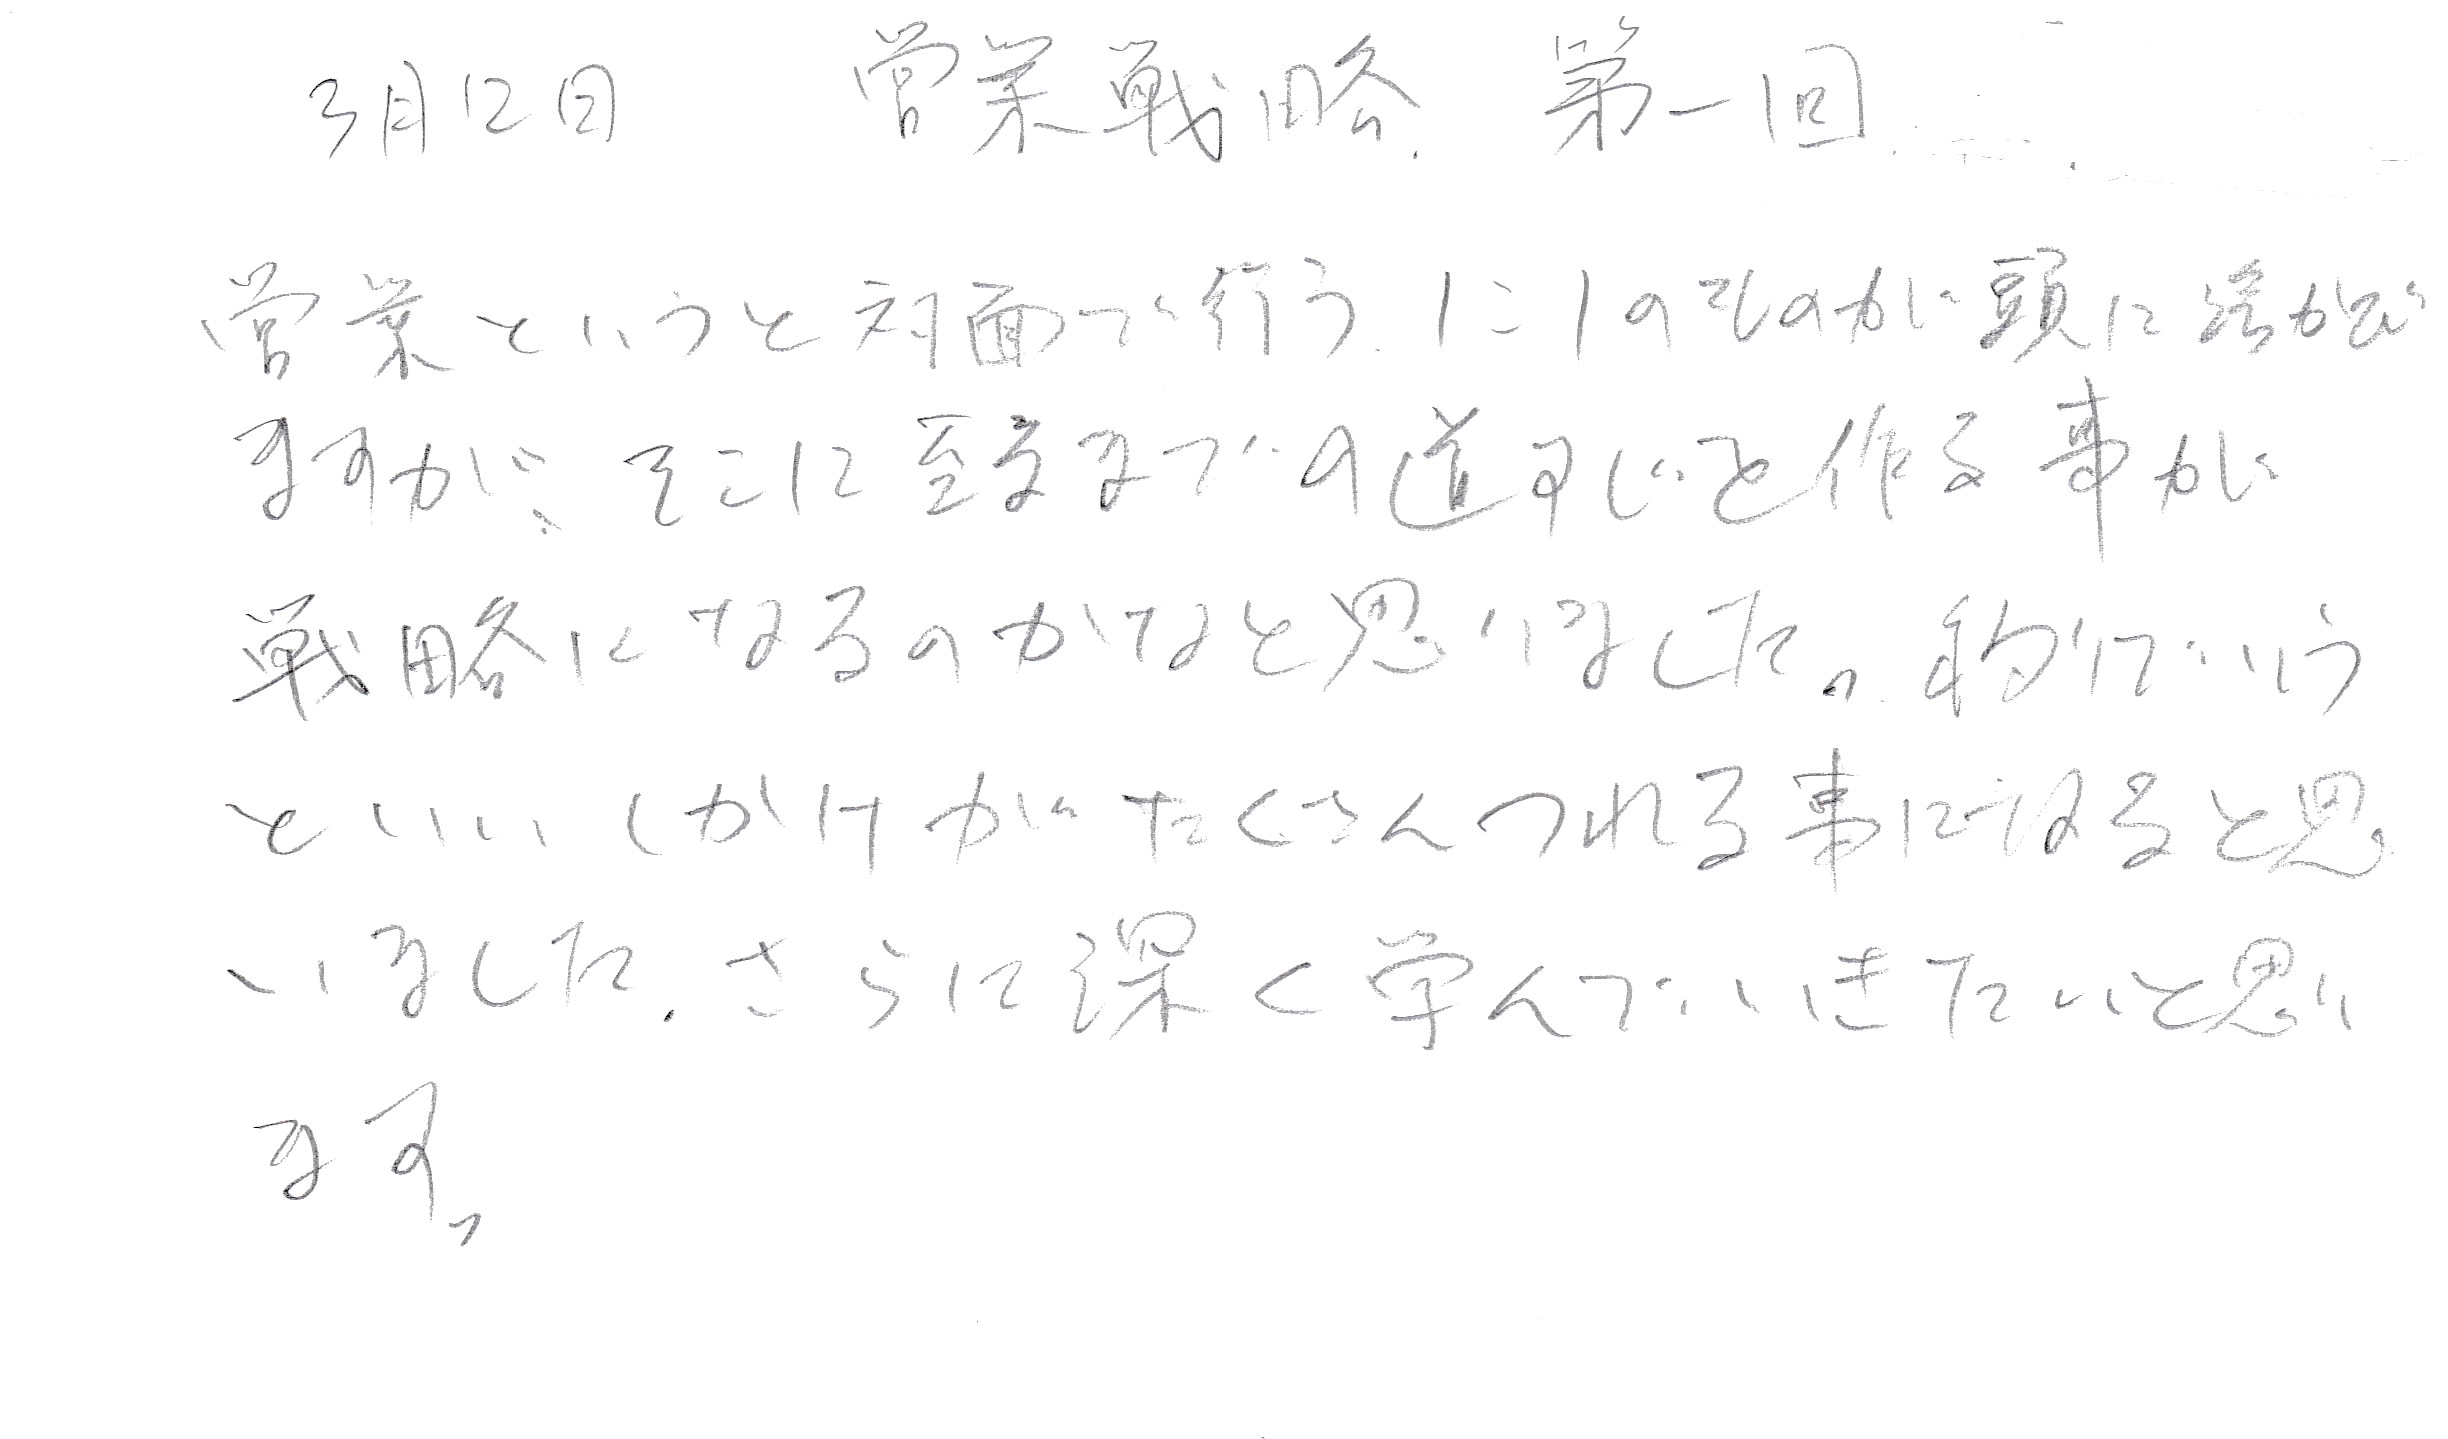 3月12日 営業戦略. 第一回
営業というと対面で行う1:1のものが頭に浮かび
ますが、そこに至るまでの道すじを作る事が
戦略になるのかなと思いました。釣りでいう
といいしかけがたくさんつれる事になると思
いました.さらに深く学んでいきたいと思い
ます。